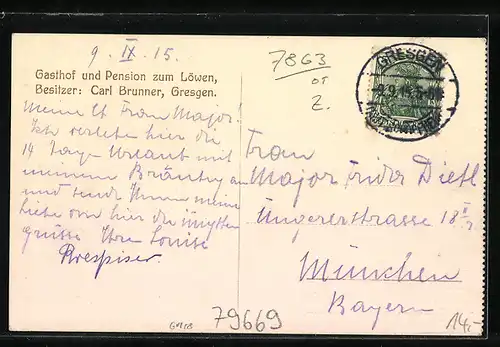 9. IX. 15.
Gasthof und Pension zum Löwen,
Besitzer: Carl Brunner, Gresgen.
Meine lb Frau Major!
Ich verlebe hier die
14 Tage Urlaub mit
meinem Bräutigam
und sende Ihnen meine
liebe von hier die
grüsse Ihre Louise
7863
or
2.
GRESGEN
9.9.15
Frau
Major Frida Dietl
Ungererstrasse 18
München
Bayern
14.-
79669